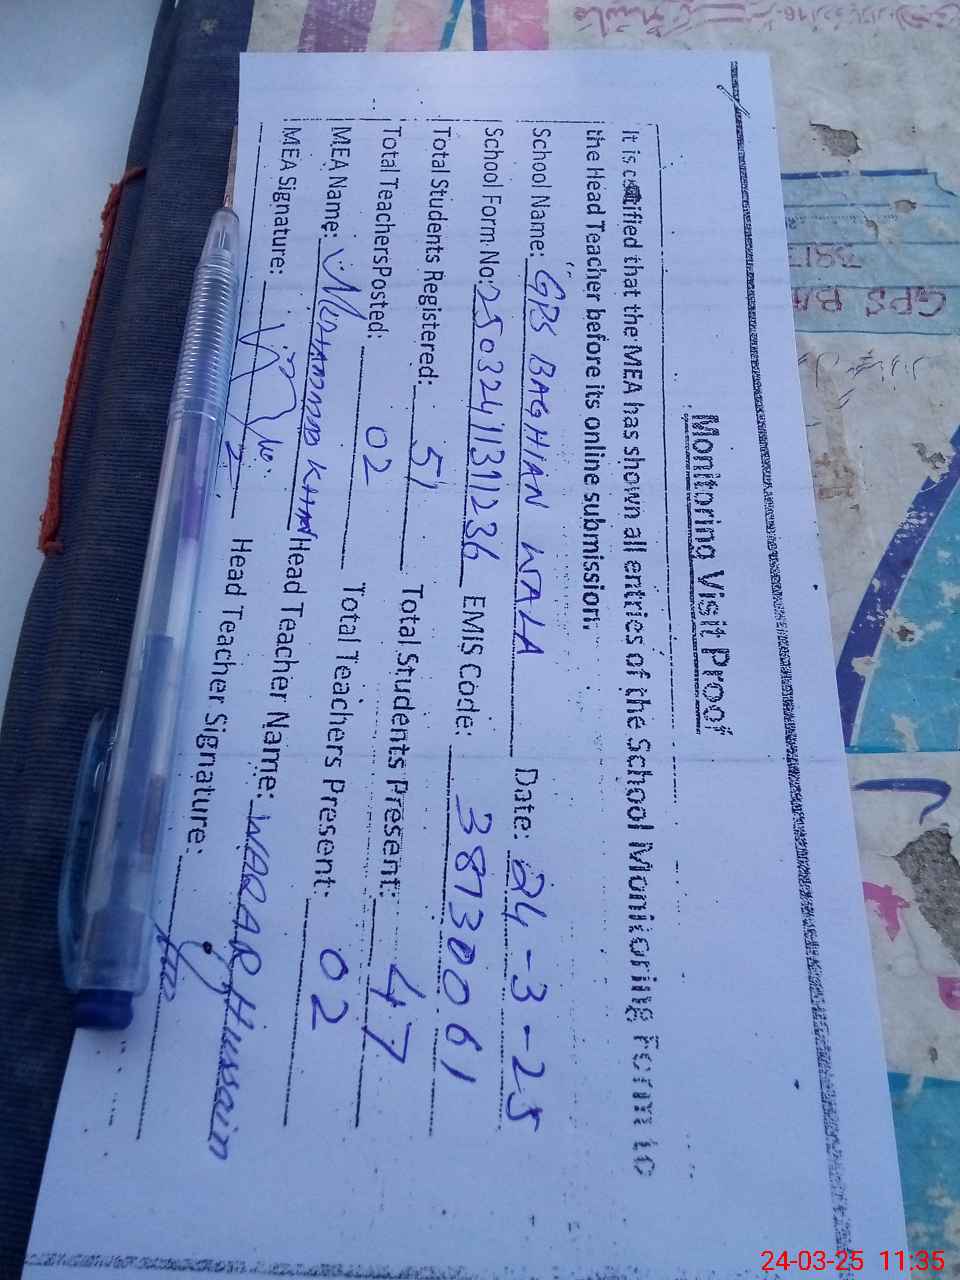 Monitoring Visit Proof
It is certified that the MEA has shown all entries of the School Monitoring Form to
the Head Teacher before its online submission.
School Name: GPS BAGHIAN WALA Date: 24-3-25
School Form No: 25032411311236 EMIS Code: 38730061
Total Students Registered: 51 Total Students Present: 47
Total TeachersPosted: 02 Total Teachers Present: 02
MEA Name: MUHAMMAD KHAN Head Teacher Name: WAQAR Hussain
MEA Signature: Head Teacher Signature:
GPS
24-03-25 11:35